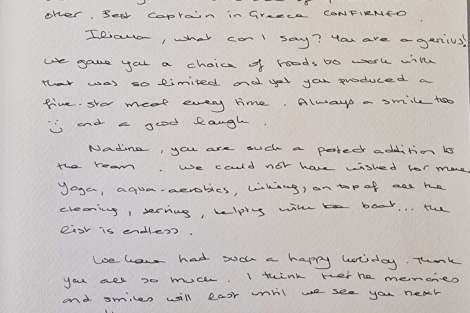 other. Best Captain in Greece CONFIRMED.
Iliana, what can I say? You are a genius!
We gave you a choice of foods to work with
that was so limited and yet you produced a
five-star meal every time. Always a smile too
:) and a good laugh.
Nadine, you are such a perfect addition to
the team. We could not have wished for more
Yoga, aqua-aerobics, hiking, on top of all the
cleaning, serving, helping with the boat... the
list is endless.
We have had such a happy holiday. Thank
you all so much. I think that the memories
and smiles will last until we see you next